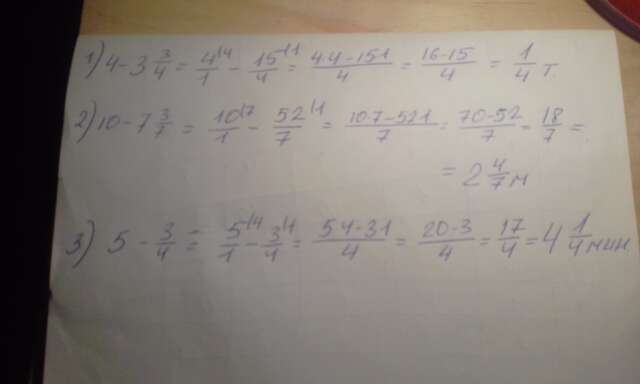 1) 4 - 3 3/4 = 4/1 - 15/4 = 4·4-15·1/4 = 16-15/4 = 1/4 т.
2) 10 - 7 3/7 = 10/1 - 52/7 = 10·7-52·1/7 = 70-52/7 = 18/7 =
= 2 4/7 м
3) 5 - 3/4 = 5/1 - 3/4 = 5·4-3·1/4 = 20-3/4 = 17/4 = 4 1/4 мин